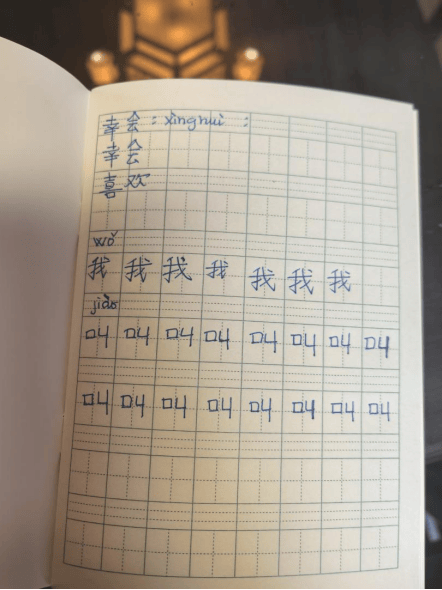 幸会：xìnghuì：
幸会
喜欢
wǒ
我 我 我 我 我 我 我
jiào
叫 叫 叫 叫 叫 叫 叫 叫
叫 叫 叫 叫 叫 叫 叫 叫